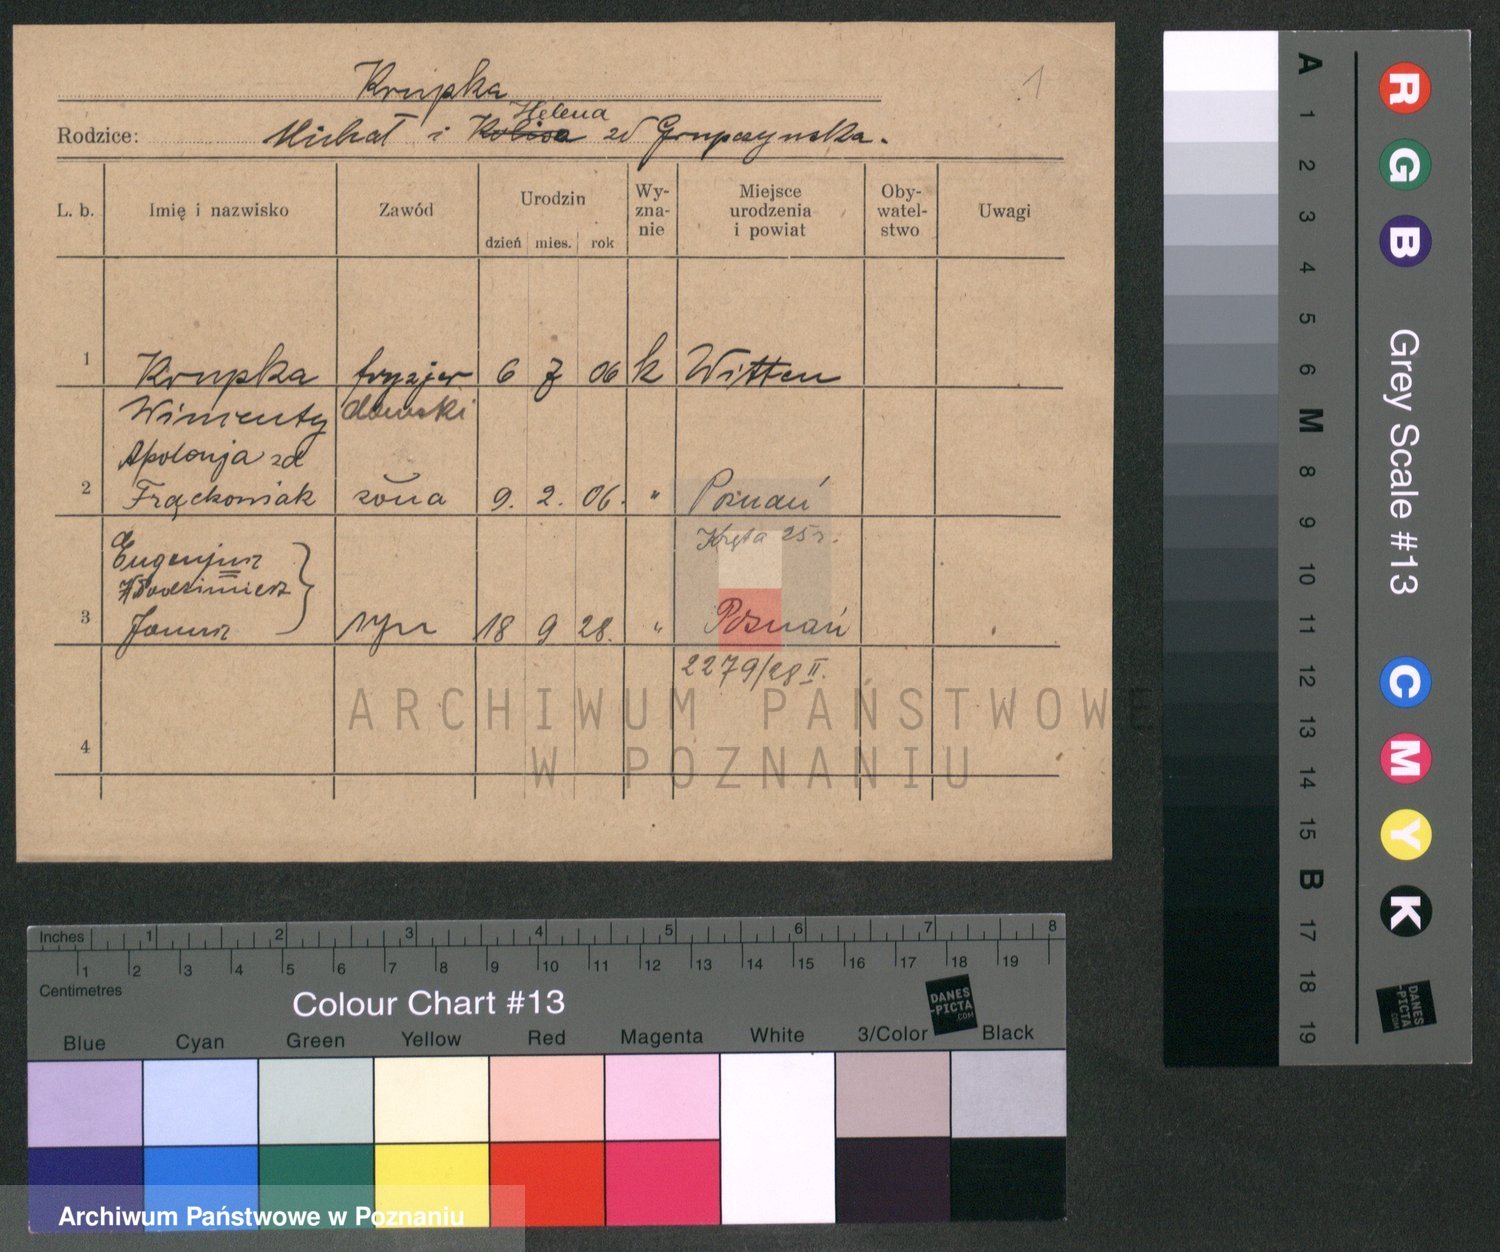 Krupka
1
Helena
Rodzice: Michał i zd Grupczynska.
L. b. Imię i nazwisko Zawód Urodzin dzień mies. rok Wy-zna-nie Miejsce urodzenia i powiat Oby-watel-stwo Uwagi
1 Krupka fryzjer 6 7 06 k Witten
Wincenty damski
Apolonja zd
2 Frąckowiak żona 9. 2. 06. " Poznań
Kręta 25
Eugenjusz
Włodzimierz
3 Janusz syn 18 9 28. " Poznań
2279/28 II.
4
ARCHIWUM PAŃSTWOWE
W POZNANIU
Inches 1 2 3 4 5 6 7 8
1 2 3 4 5 6 7 8 9 10 11 12 13 14 15 16 17 18 19
Centimetres
Colour Chart #13
DANES
-PICTA
.COM
Blue Cyan Green Yellow Red Magenta White 3/Color Black
Archiwum Państwowe w Poznaniu
R G B Grey Scale #13 C M Y K
A 1 2 3 4 5 6 M 8 9 10 11 12 13 14 15 B 17 18 19
DANES
-PICTA
.COM